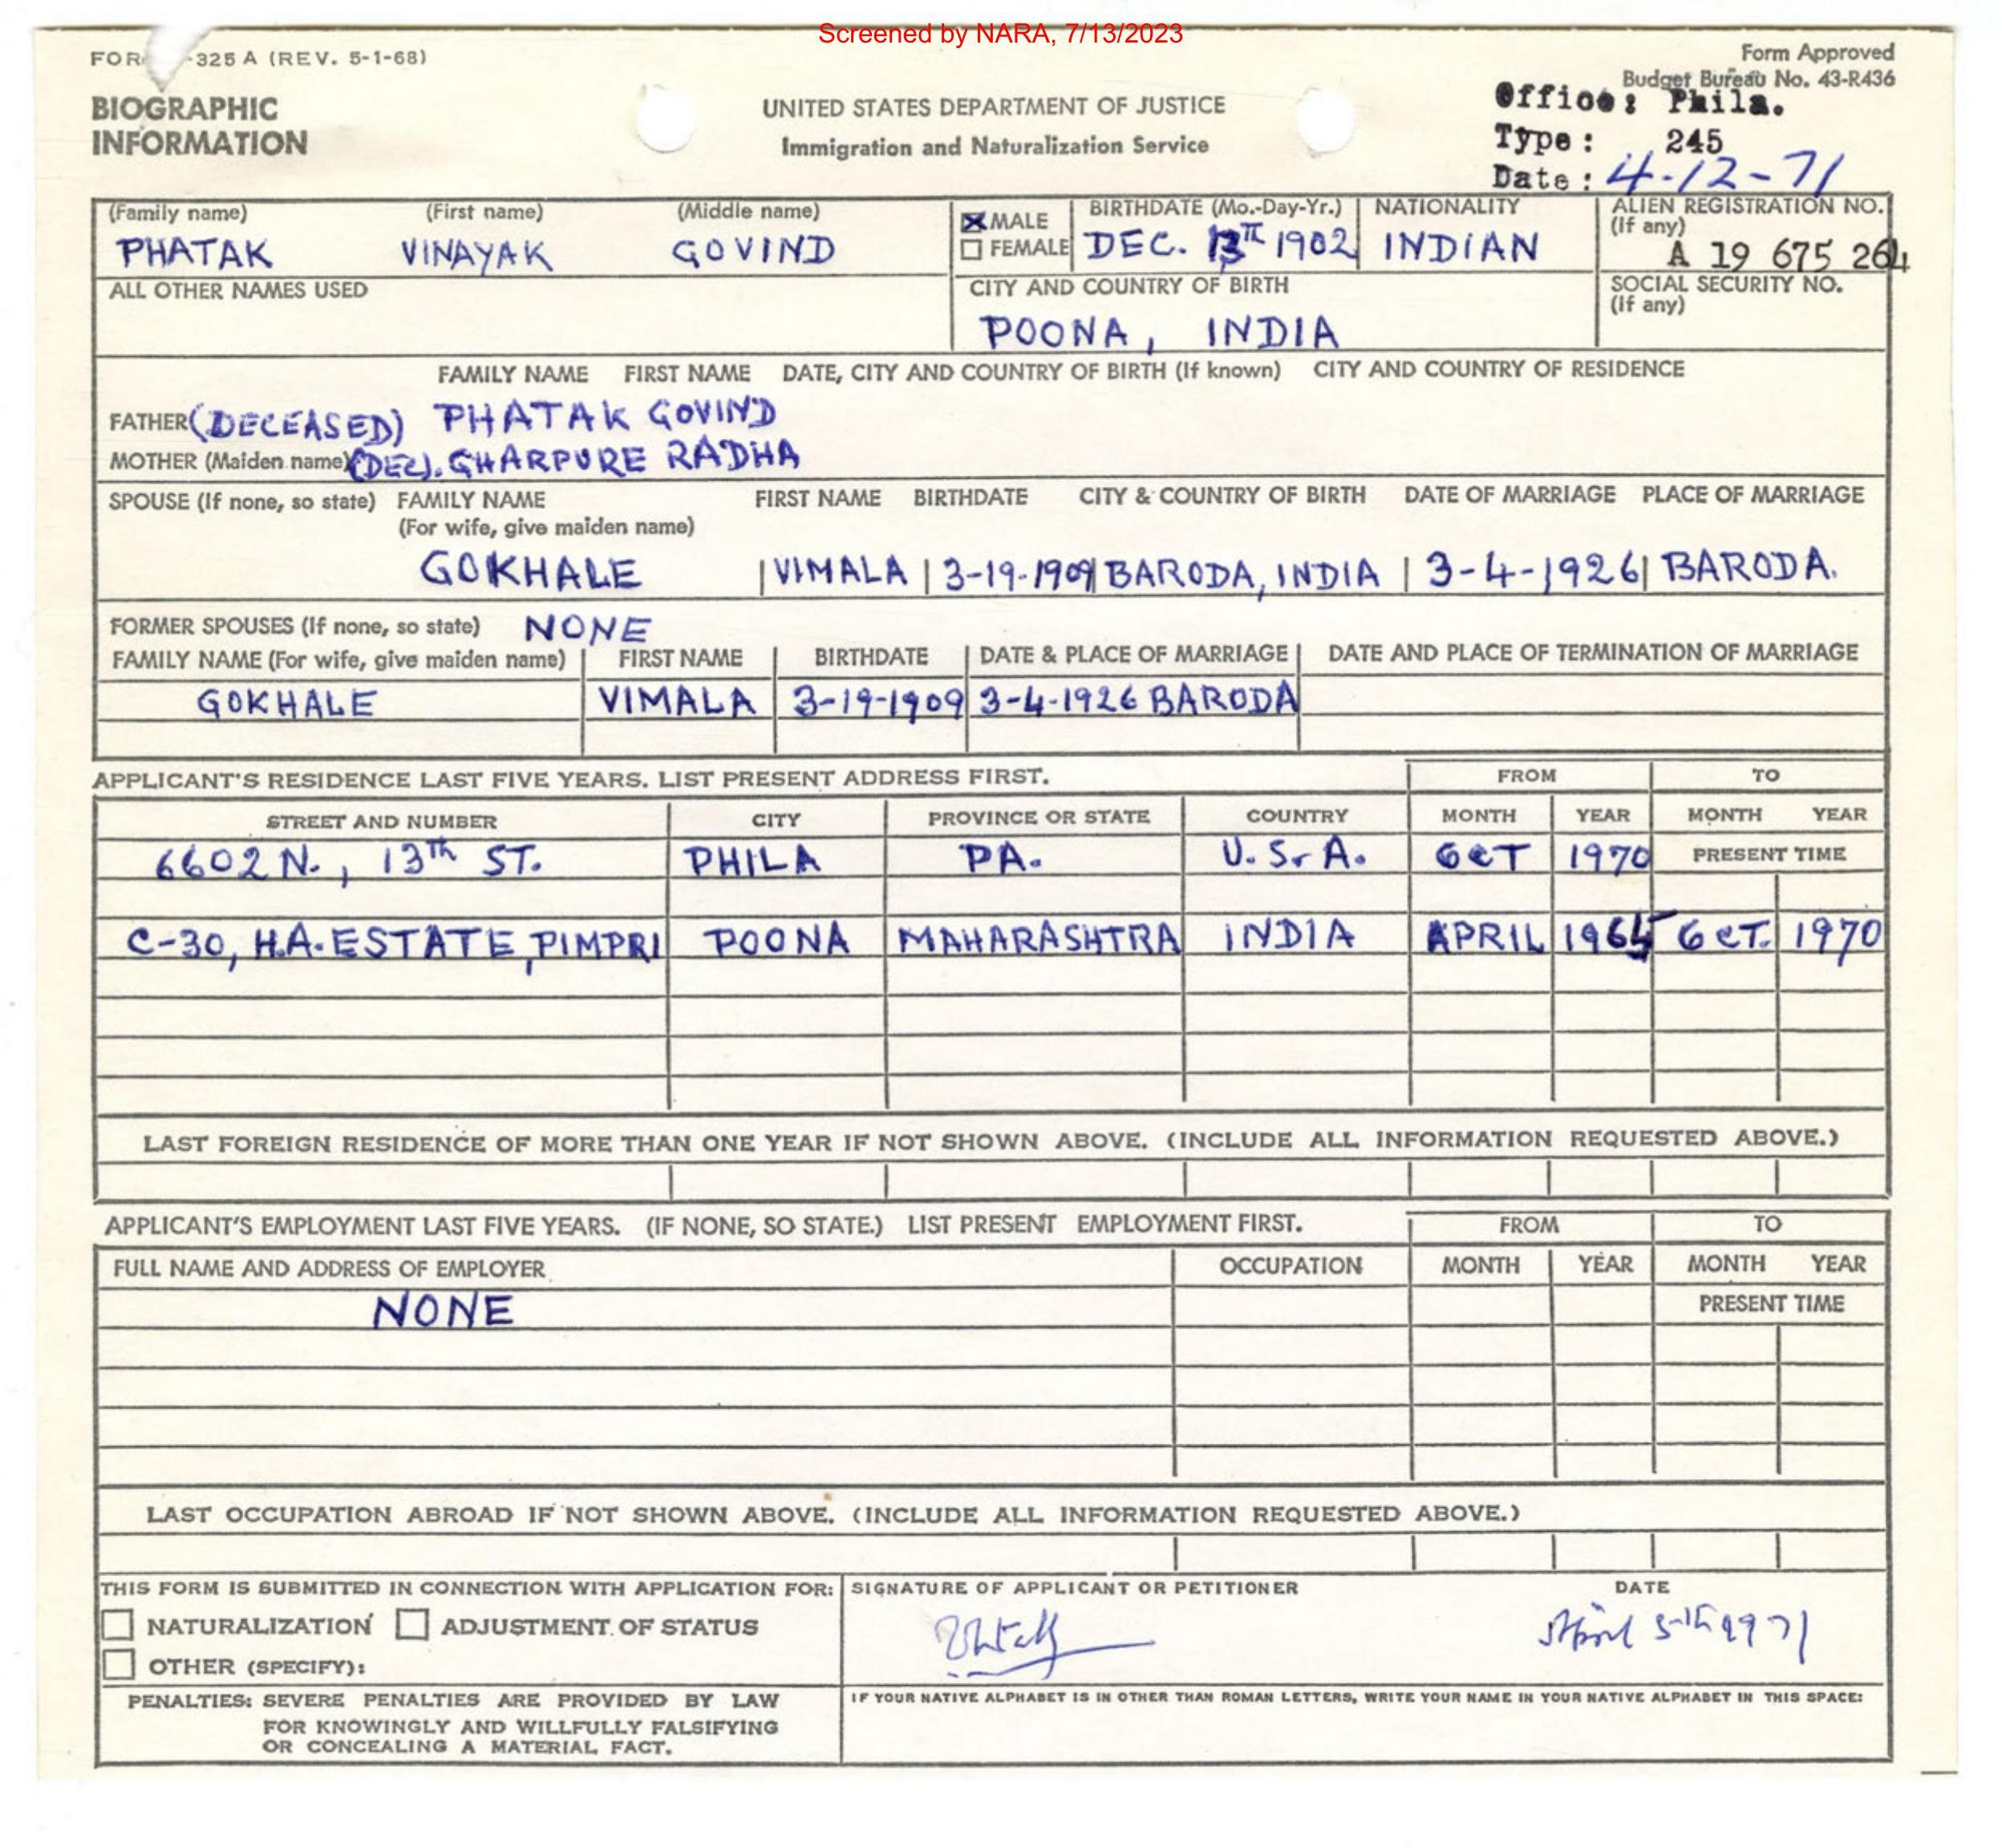 Screened by NARA, 7/13/2023
FOR -325 A (REV. 5-1-68)
Form Approved
Budget Bureau No. 43-R436
BIOGRAPHIC
INFORMATION
UNITED STATES DEPARTMENT OF JUSTICE
Immigration and Naturalization Service
Office: Phila.
Type: 245
Date: 4-12-71
(Family name) (First name) (Middle name)
PHATAK VINAYAK GOVIND
MALE
FEMALE
BIRTHDATE (Mo.-Day-Yr.)
DEC. 13 1902
NATIONALITY
INDIAN
ALIEN REGISTRATION NO.
(If any)
A 19 675 264
ALL OTHER NAMES USED
CITY AND COUNTRY OF BIRTH
POONA, INDIA
SOCIAL SECURITY NO.
(If any)
FAMILY NAME FIRST NAME DATE, CITY AND COUNTRY OF BIRTH (If known) CITY AND COUNTRY OF RESIDENCE
FATHER (DECEASED) PHATAK GOVIND
MOTHER (Maiden name) (DEC). GHARPURE RADHA
SPOUSE (If none, so state) FAMILY NAME FIRST NAME BIRTHDATE CITY & COUNTRY OF BIRTH DATE OF MARRIAGE PLACE OF MARRIAGE
(For wife, give maiden name)
GOKHALE | VIMALA | 3-19-1909 | BARODA, INDIA | 3-4-1926 | BARODA.
FORMER SPOUSES (If none, so state) NONE
FAMILY NAME (For wife, give maiden name) FIRST NAME BIRTHDATE DATE & PLACE OF MARRIAGE DATE AND PLACE OF TERMINATION OF MARRIAGE
GOKHALE VIMALA 3-19-1909 3-4-1926 BARODA
APPLICANT'S RESIDENCE LAST FIVE YEARS. LIST PRESENT ADDRESS FIRST. FROM TO
STREET AND NUMBER CITY PROVINCE OR STATE COUNTRY MONTH YEAR MONTH YEAR
6602 N., 13th ST. PHILA PA. U.S.A. OCT 1970 PRESENT TIME
C-30, H.A. ESTATE, PIMPRI POONA MAHARASHTRA INDIA APRIL 1965 OCT. 1970
LAST FOREIGN RESIDENCE OF MORE THAN ONE YEAR IF NOT SHOWN ABOVE. (INCLUDE ALL INFORMATION REQUESTED ABOVE.)
APPLICANT'S EMPLOYMENT LAST FIVE YEARS. (IF NONE, SO STATE.) LIST PRESENT EMPLOYMENT FIRST. FROM TO
FULL NAME AND ADDRESS OF EMPLOYER OCCUPATION MONTH YEAR MONTH YEAR
NONE PRESENT TIME
LAST OCCUPATION ABROAD IF NOT SHOWN ABOVE. (INCLUDE ALL INFORMATION REQUESTED ABOVE.)
THIS FORM IS SUBMITTED IN CONNECTION WITH APPLICATION FOR:
NATURALIZATION ADJUSTMENT OF STATUS
OTHER (SPECIFY):
SIGNATURE OF APPLICANT OR PETITIONER DATE
April 5th 1971
PENALTIES: SEVERE PENALTIES ARE PROVIDED BY LAW
FOR KNOWINGLY AND WILLFULLY FALSIFYING
OR CONCEALING A MATERIAL FACT.
IF YOUR NATIVE ALPHABET IS IN OTHER THAN ROMAN LETTERS, WRITE YOUR NAME IN YOUR NATIVE ALPHABET IN THIS SPACE: